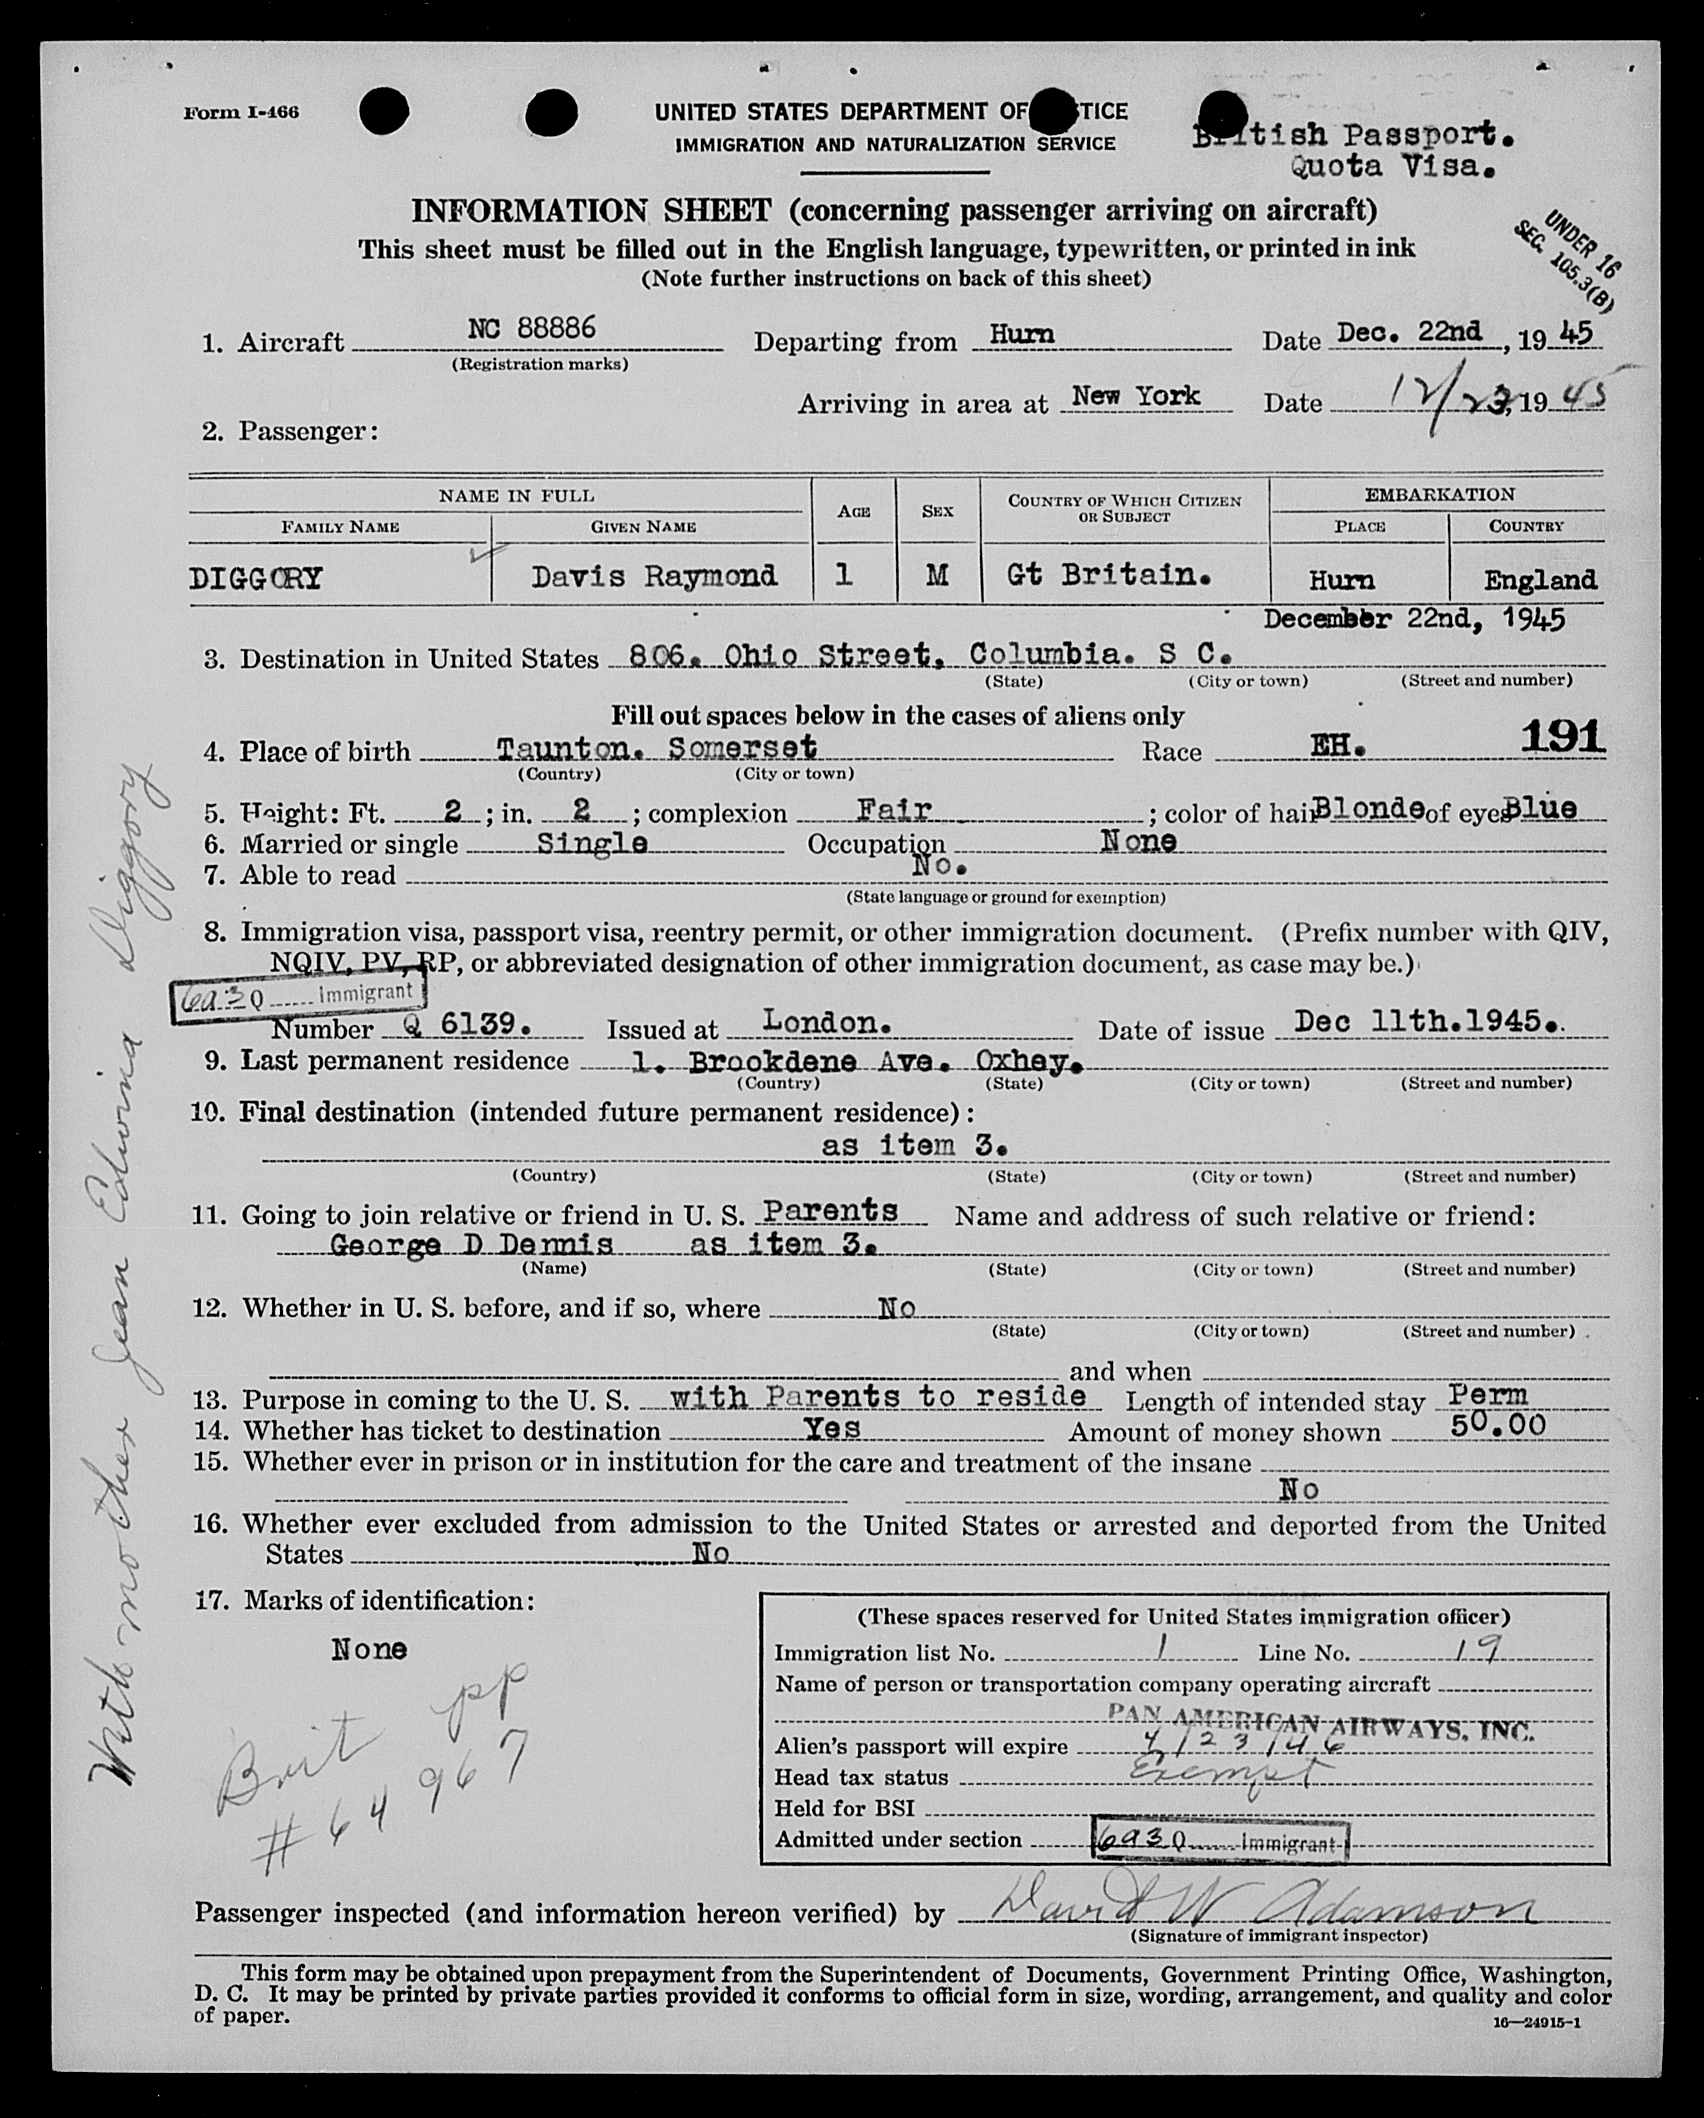 Form I-466
UNITED STATES DEPARTMENT OF TICE
IMMIGRATION AND NATURALIZATION SERVICE
British Passport.
Quota Visa.
INFORMATION SHEET (concerning passenger arriving on aircraft)
This sheet must be filled out in the English language, typewritten, or printed in ink
(Note further instructions on back of this sheet)
UNDER 16
SEC. 105.3(B)
1. Aircraft NC 88886 Departing from Hurn Date Dec. 22nd, 1945
(Registration marks)
Arriving in area at New York Date 12/23, 1945
2. Passenger:
NAME IN FULL AGE SEX COUNTRY OF WHICH CITIZEN OR SUBJECT EMBARKATION
FAMILY NAME GIVEN NAME PLACE COUNTRY
DIGGORY Davis Raymond 1 M Gt Britain. Hurn England
December 22nd, 1945
3. Destination in United States 806. Ohio Street, Columbia. S C.
(State) (City or town) (Street and number)
Fill out spaces below in the cases of aliens only
191
4. Place of birth Taunton. Somerset Race EH.
(Country) (City or town)
5. Height: Ft. 2; in. 2; complexion Fair; color of hair Blonde of eyes Blue
6. Married or single Single Occupation None
7. Able to read No.
(State language or ground for exemption)
8. Immigration visa, passport visa, reentry permit, or other immigration document. (Prefix number with QIV,
NQIV, PV, RP, or abbreviated designation of other immigration document, as case may be.)
6a3 Q Immigrant
Number Q 6139. Issued at London. Date of issue Dec 11th.1945.
9. Last permanent residence 1. Brookdene Ave. Oxhey.
(Country) (State) (City or town) (Street and number)
10. Final destination (intended future permanent residence):
as item 3.
(Country) (State) (City or town) (Street and number)
11. Going to join relative or friend in U. S. Parents Name and address of such relative or friend:
George D Dennis as item 3.
(Name) (State) (City or town) (Street and number)
12. Whether in U. S. before, and if so, where No
(State) (City or town) (Street and number)
and when
13. Purpose in coming to the U. S. with Parents to reside Length of intended stay Perm
14. Whether has ticket to destination Yes Amount of money shown 50.00
15. Whether ever in prison or in institution for the care and treatment of the insane
No
16. Whether ever excluded from admission to the United States or arrested and deported from the United
States No
17. Marks of identification:
None
Brit pp
# 64967
With mother Jean Edwina Diggory
(These spaces reserved for United States immigration officer)
Immigration list No. 1 Line No. 19
Name of person or transportation company operating aircraft
PAN AMERICAN AIRWAYS, INC.
Alien's passport will expire 4/23/46
Head tax status Exempt
Held for BSI
Admitted under section 6a3 Q Immigrant
Passenger inspected (and information hereon verified) by David W Adamson
(Signature of immigrant inspector)
This form may be obtained upon prepayment from the Superintendent of Documents, Government Printing Office, Washington,
D. C. It may be printed by private parties provided it conforms to official form in size, wording, arrangement, and quality and color
of paper.
16—24915-1